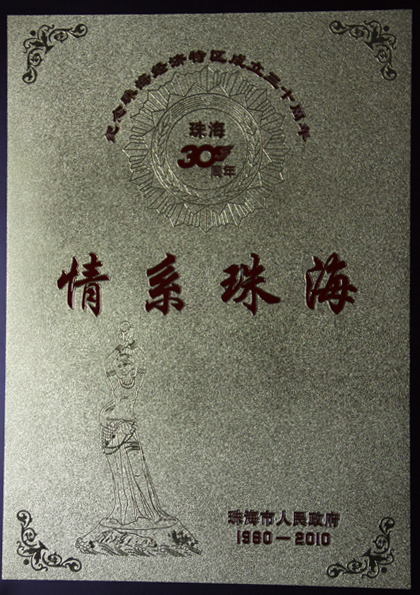 纪念珠海经济特区成立三十周年
珠海
30
周年
情系珠海
珠海市人民政府
1980—2010